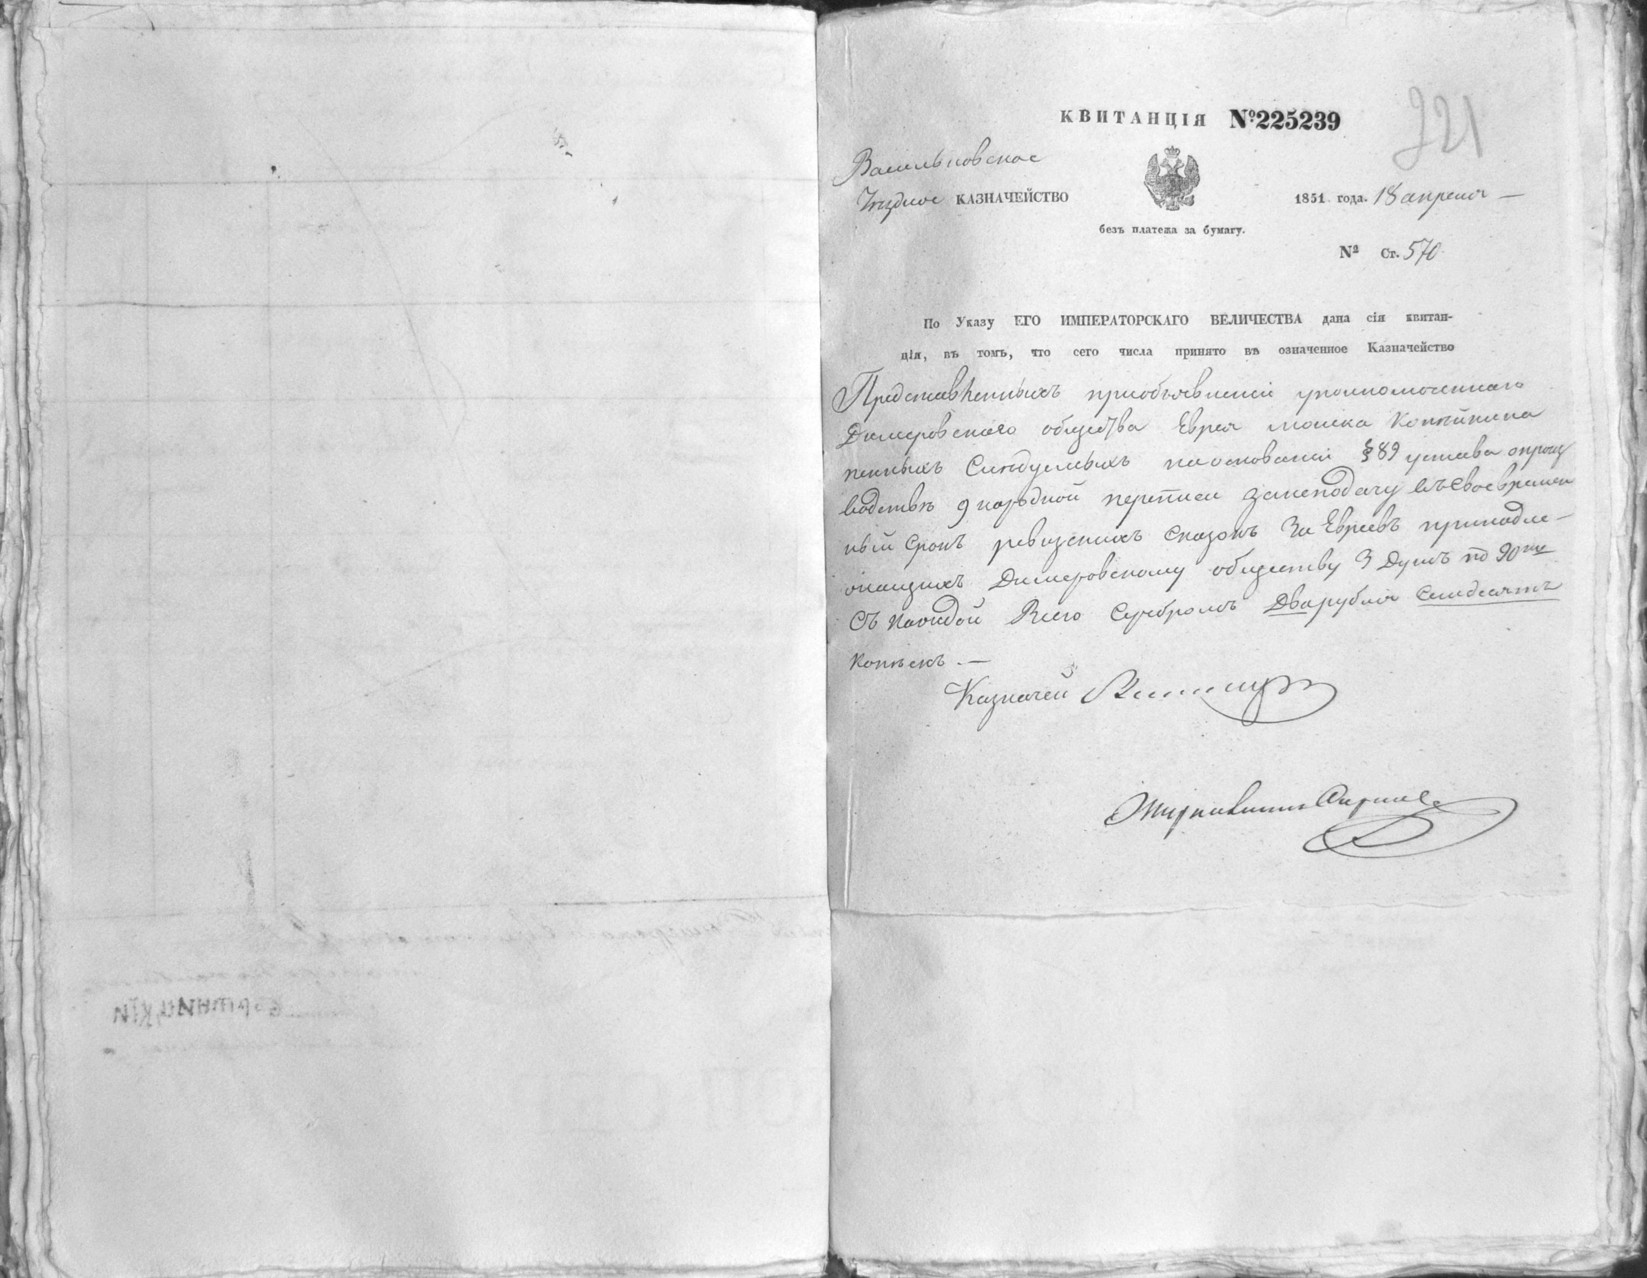 КВИТАНЦІЯ №225239
221
Васильковское
Уездное КАЗНАЧЕЙСТВО
1851 года. 18 апреля —
безъ платежа за бумагу.
№ Ст. 570
По Указу ЕГО ИМПЕРАТОРСКАГО ВЕЛИЧЕСТВА дана сія квитан-
ція, въ томъ, что сего числа принято въ означенное Казначейство
Представленныхъ приобъявленіи уполномоченнаго
Димеровскаго общества Еврея
следуемыхъ наоснованіи §89 устава опроиз
водстве 9 народной переписи занеподачу въ Своевремен
ный Срокъ ревизскихъ Сказокъ За Евреевъ принадле-
жащихъ Димеровскому обществу 3 Душъ по 90
Съ каждой Всего Серебромъ Два рубля Семдесятъ
копѣекъ. —
Казначей